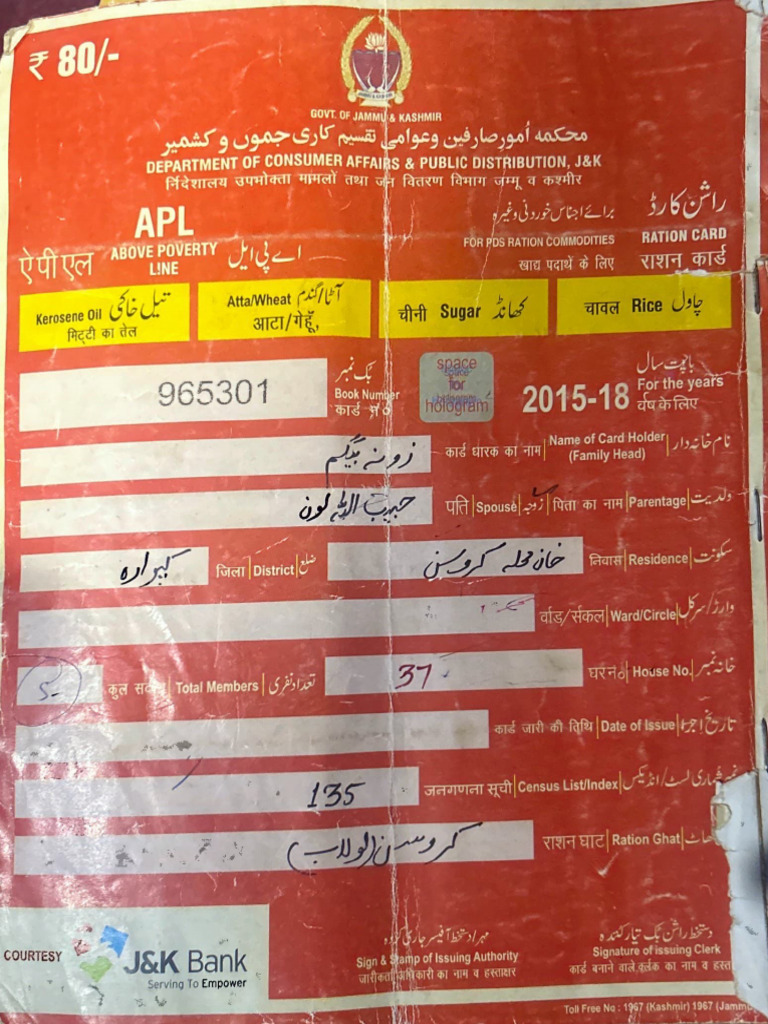 ₹ 80/-
GOVT. OF JAMMU & KASHMIR
محکمہ اُمورِ صارفین و عوامی تقسیم کاری جموں و کشمیر
DEPARTMENT OF CONSUMER AFFAIRS & PUBLIC DISTRIBUTION, J&K
निदेशालय उपभोक्ता मामलों तथा जन वितरण विभाग जम्मू व कश्मीर
APL برائے اجناس خوردنی وغیرہ راشن کارڈ
ऐ पी एल ABOVE POVERTY LINE اے پی ایل FOR PDS RATION COMMODITIES RATION CARD
खाद्य पदार्थे के लिए राशन कार्ड
Kerosene Oil تیل خاکی Atta/Wheat آٹا/گندم चीनी Sugar کھانڈ चावल Rice چاول
मिट्टी का तेल आटा/गेहूँ,
965301 بُک نمبر Book Number कार्ड नं० space for hologram 2015-18 بابت سال For the years र्वष के लिए
زونہ بیگم कार्ड धारक का नाम Name of Card Holder (Family Head) نام خانہ دار
حبیب اللہ لون पति Spouse زوجہ पिता का नाम Parentage ولدیت
کپوارہ जिला District ضلع خان محلہ निवास Residence سکونت
र्वाड/र्सकल Ward/Circle وارڈ/سرکل
5 कुल Total Members تعداد نفری 37 घर नं० House No. خانہ نمبر
कार्ड जारी की तिथि Date of Issue تاریخ اجرا
135 जनगणना सूची Census List/Index شماری لسٹ/انڈیکس
राशन घाट Ration Ghat گھاٹ
COURTESY J&K Bank
Serving To Empower
مہر و دستخط آفیسر جاری کنندہ دستخط راشن بک تیار کنندہ
Sign & Stamp of Issuing Authority Signature of issuing Clerk
जारीकर्ता अधिकारी का नाम व हस्ताक्षर कार्ड बनाने वाले क्लर्क का नाम व हस्त
Toll Free No : 1967 (Kashmir) 1967 (Jammu